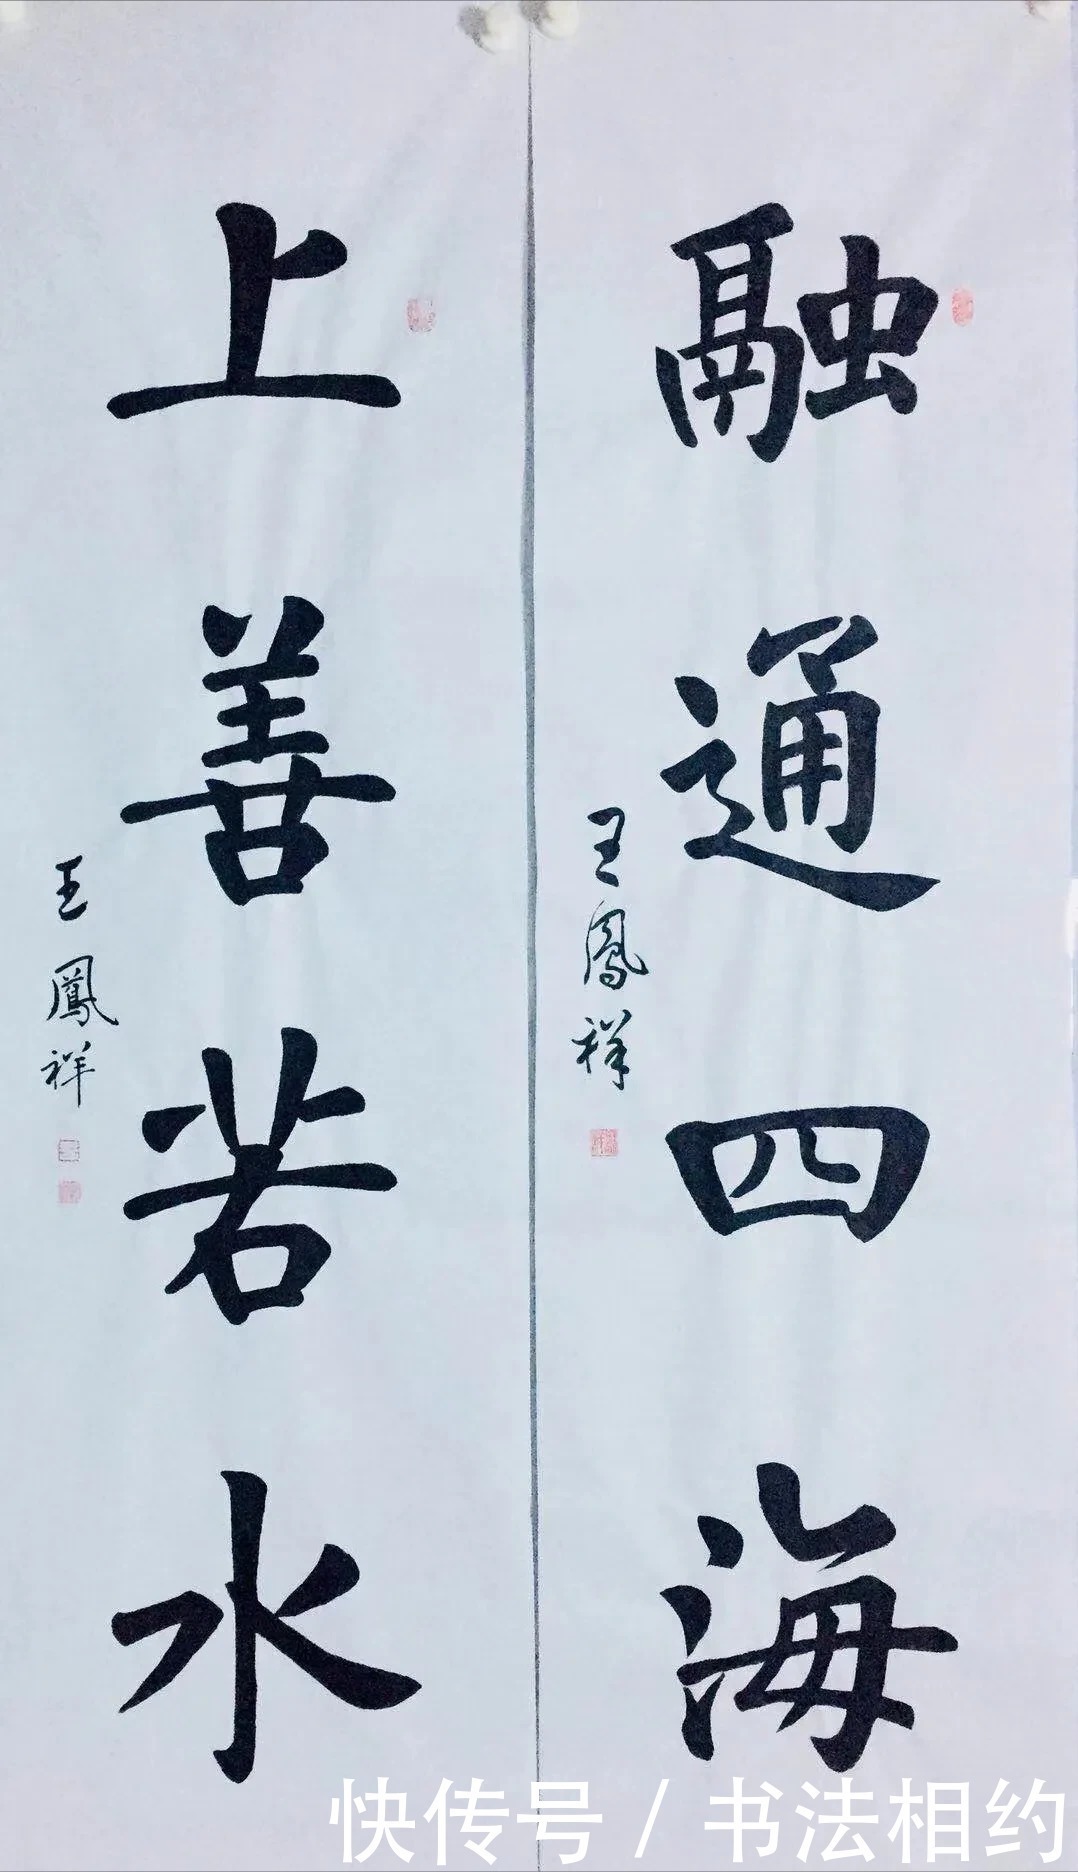 融通四海
王鳳祥
上善若水
王鳳祥
快传号 / 书法相约